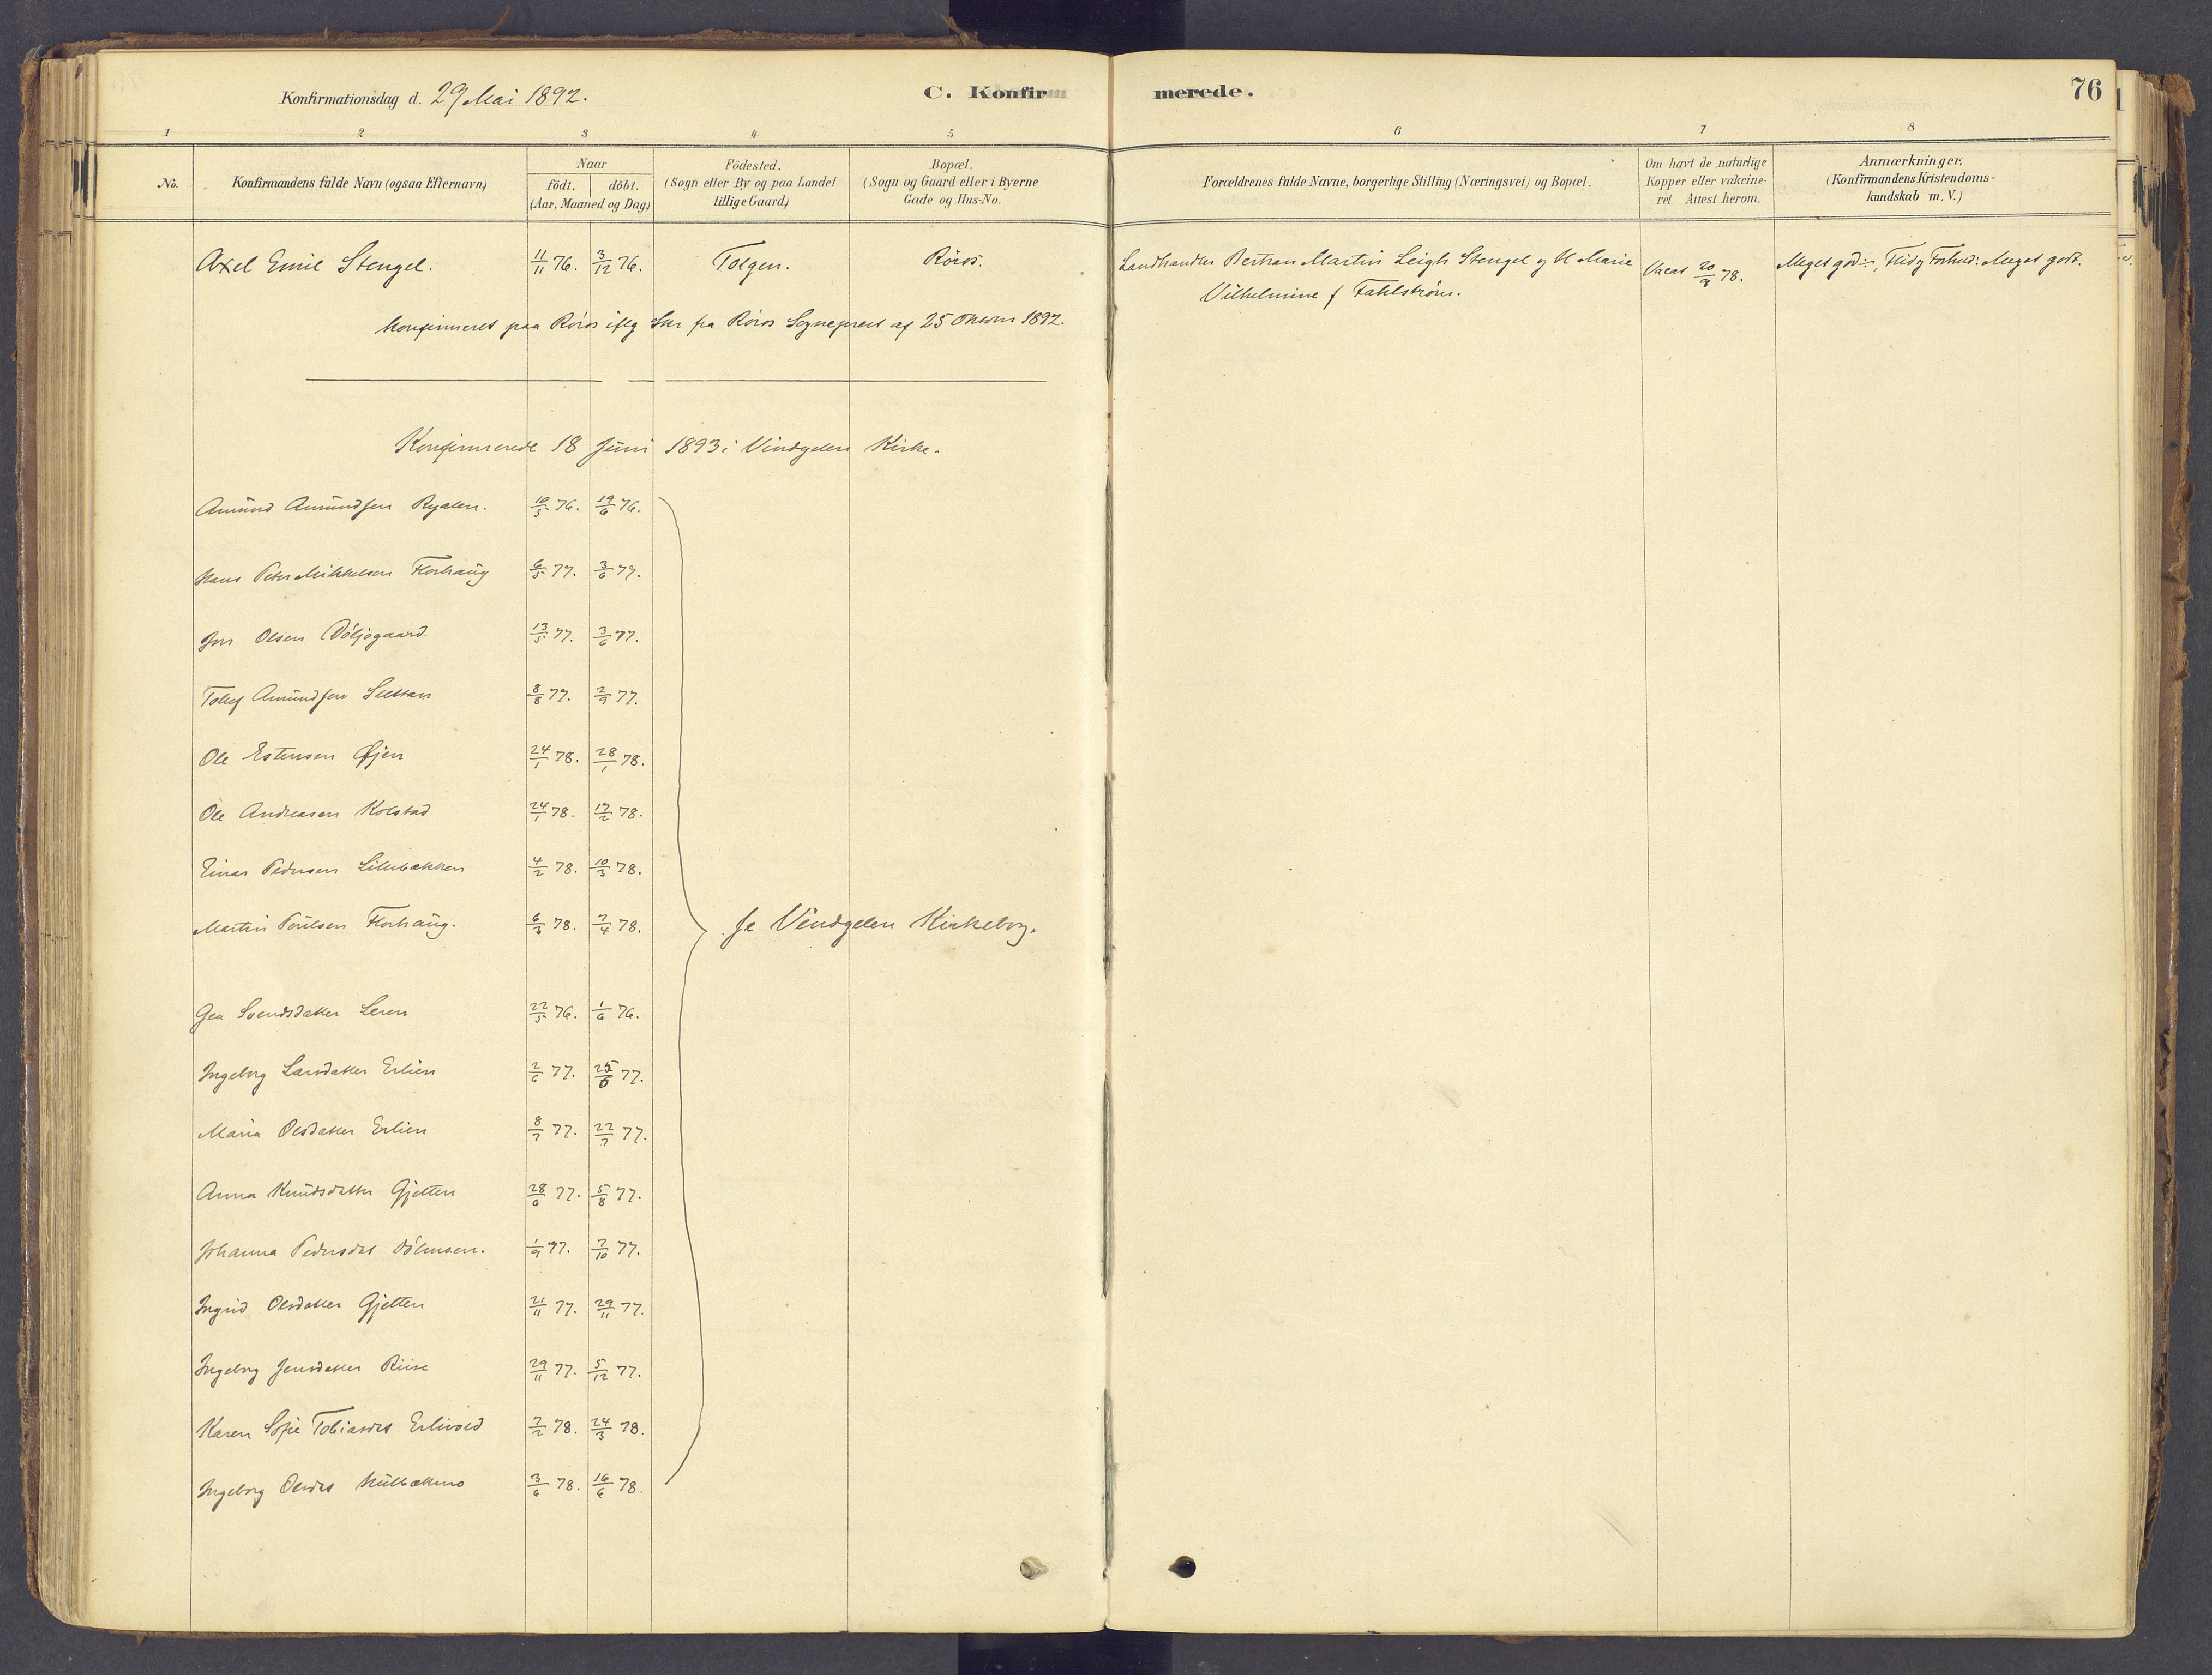 Konfirmationsdag d. 29 Mai 1892.
C. Konfirmerede.
76
1 2 3 4 5 6 7 8
No.
Konfirmandens fulde Navn (ogsaa Efternavn)
Naar
födt. döbt.
(Aar, Maaned og Dag)
Födested.
(Sogn eller By og paa Landet
tillige Gaard)
Bopæl.
(Sogn og Gaard eller i Byerne
Gade og Hus-No.
Forældrenes fulde Navne, borgerlige Stilling (Næringsvei) og Bopæl.
Om havt de naturlige
Kopper eller vakcine-
ret Attest herom.
Anmærkninger.
(Konfirmandens Kristendoms-
kundskab m. V.)
Axel Emil Stengel. 11/11 76. 3/12 76. Tolgen. Röros. Landhandler Bertran Martin Leigh Stengel og H Marie Vacat 20/9 78. Meget god, Flid og Forhold: Meget godt.
Vilhelmine f Fahlström.
Konfirmeret paa Röros iflg Skr fra Röros Sogneprest af 25 Oktober 1892.
Konfirmerede 18 Juni 1893 i Vindgelen Kirke.
Amund Amundsen Ryalen. 10/5 76. 19/6 76.
Hans Peter Mikkelsen Florhaug 6/5 77. 3/6 77.
Jon Olsen Döljogaard. 13/5 77. 3/6 77.
Tollef Amundsen 8/8 77. 2/9 77.
Ole Estensen Øjen 24/1 78. 28/1 78.
Ole Andreasen Kolstad 24/1 78. 17/2 78.
Einar Pedersen Lillebakken 4/2 78. 10/3 78.
Martin Poulsen Florhaug. 6/3 78. 7/4 78.
Se Vindgelen Kirkebog.
Gea Svendsdatter Leren 22/5 76. 1/6 76.
Ingeborg Larsdatter Erlien 2/6 77. 77.
Maria Olsdatter Erlien 8/7 77. 22/7 77.
Anna Knudsdatter Gjelten 28/6 77. 5/8 77.
Johanna Pedersdat Dölmoen. 1/9 77. 7/10 77.
Ingrid Olsdatter Gjelten 21/11 77. 29/11 77.
Ingeborg Jensdatter Riise 29/11 77. 5/12 77.
Karen Sofie Tobiasdat Erlivold 7/2 78. 24/3 78.
Ingeborg Olsdat 3/6 78. 16/6 78.